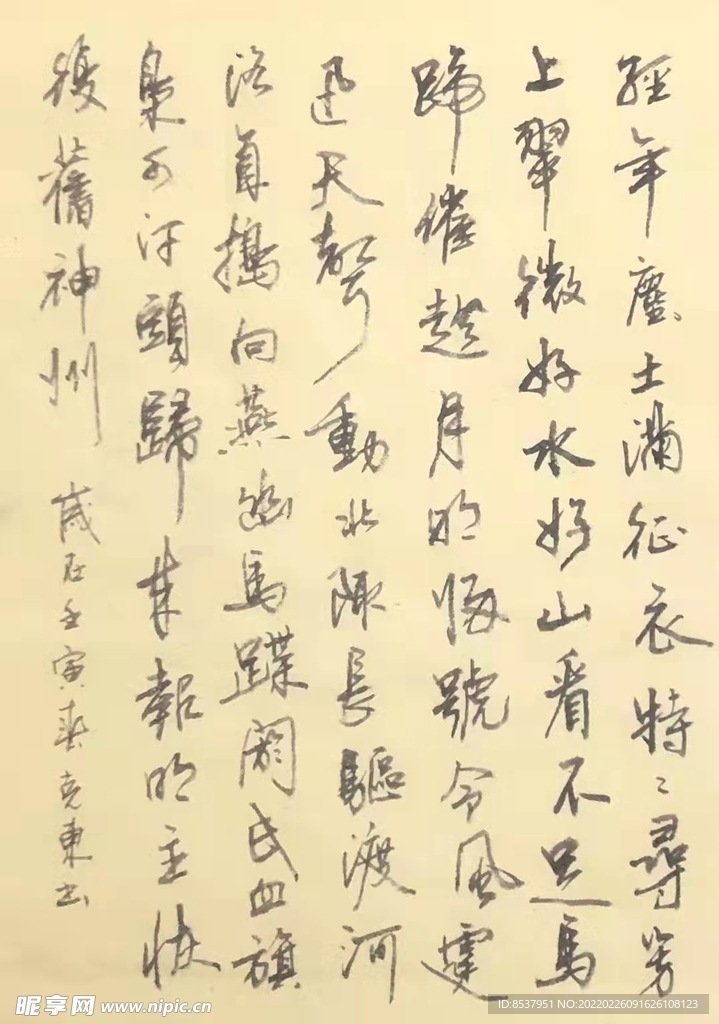 經年塵土滿征衣特〻尋芳
上翠微好水好山看不足馬
蹄催趁月明歸號令風霆
迅天聲動北陬長驅渡河
洛直搗向燕幽馬蹀閼氏血旗
梟可汗頭歸來報明主恢
復舊神州 歲在壬寅春克東书
昵享网 www.nipic.cn
ID:8537951 NO:20220226091626108123